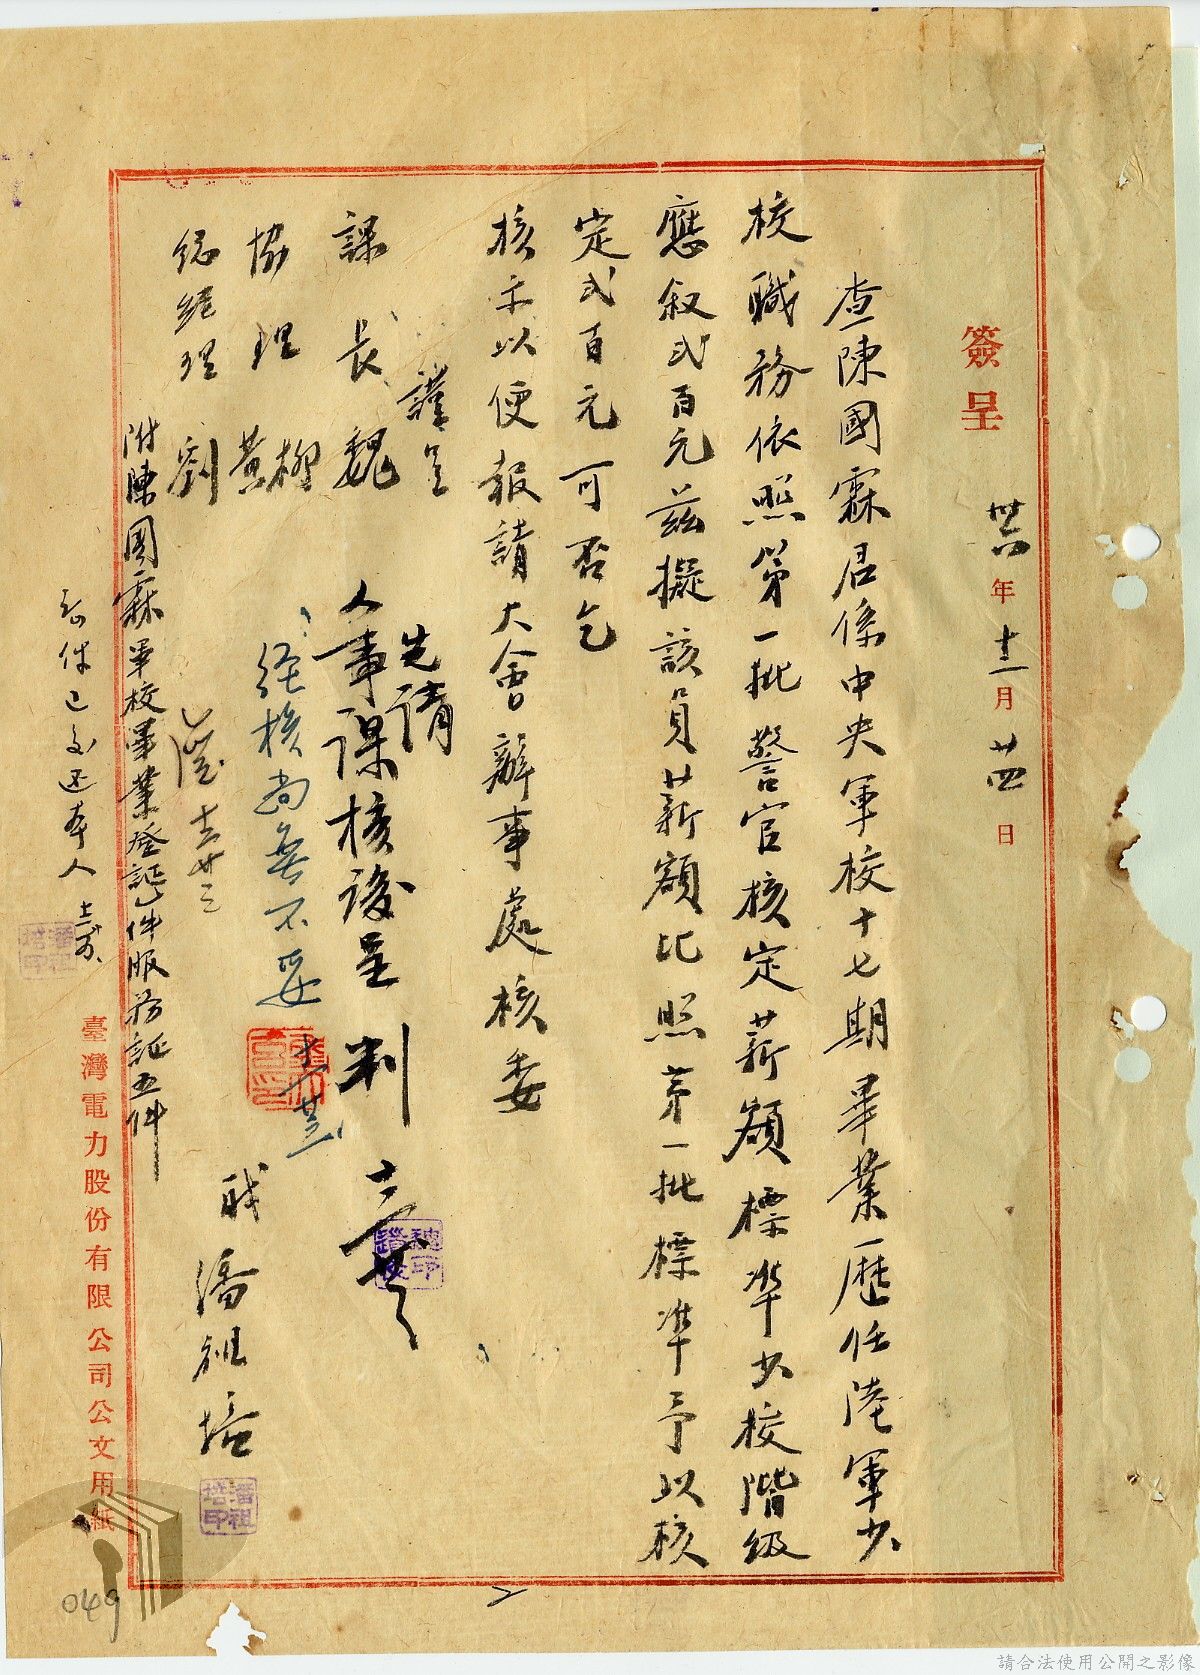 簽呈
卅六年十二月廿四日
查陳國霖君係中央軍校十七期畢業歷任陸軍少
校職務依照第一批警官核定薪額標準少校階級
應叙弍百元茲擬該員薪額比照第一批標準予以核
定弍百元可否乞
核示以便報請大會辦事處核委
謹呈
課長魏
協理 柳 黃
總經理劉
先請
人事課核後呈判
經核尚無不妥
職 潘祖培
潘祖培印
附陳國霖軍校畢業登記證一件服務証五件
已交還本人
潘祖培印
臺灣電力股份有限公司公文用紙
049
請合法使用公開之影像